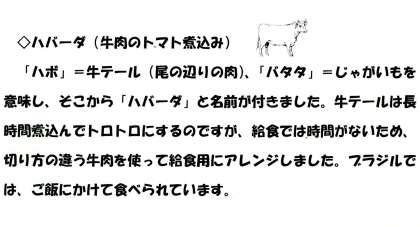 ◇ハバーダ（牛肉のトマト煮込み）
「ハボ」＝牛テール（尾の辺りの肉）、「バタタ」＝じゃがいもを
意味し、そこから「ハバーダ」と名前が付きました。牛テールは長
時間煮込んでトロトロにするのですが、給食では時間がないため、
切り方の違う牛肉を使って給食用にアレンジしました。ブラジルで
は、ご飯にかけて食べられています。